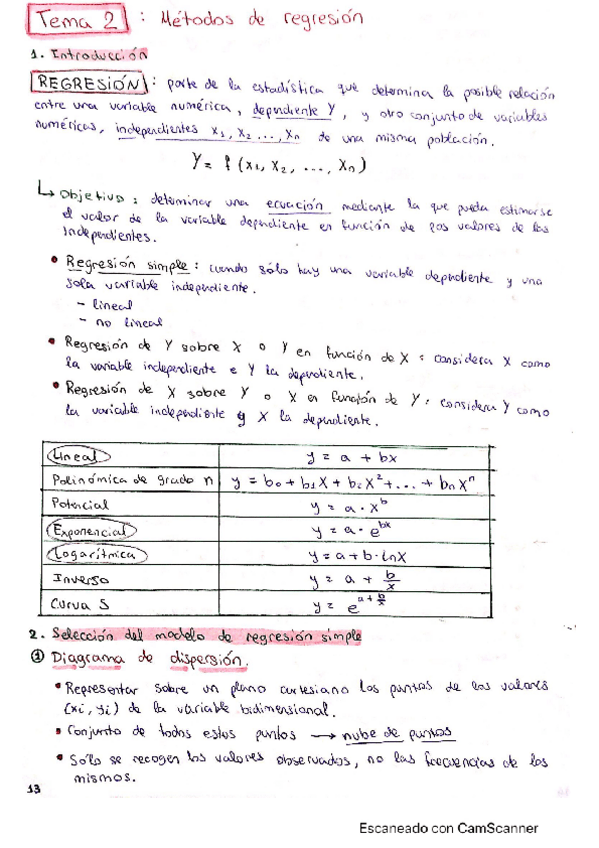 Tema 2 : Métodos de regresión
1. Introducción
REGRESIÓN : parte de la estadística que determina la posible relación
entre una variable numérica, dependiente Y, y otro conjunto de variables
numéricas, independientes x1, x2 ..., xn de una misma población.
Y = f (x1, x2, ..., xn)
↳ Objetivo : determinar una ecuación mediante la que pueda estimarse
el valor de la variable dependiente en función de los valores de las
independientes.
• Regresión simple : cuando sólo hay una variable dependiente y una
sola variable independiente.
- lineal
- no lineal
• Regresión de Y sobre X o Y en función de X : considera X como
la variable independiente e Y la dependiente.
• Regresión de X sobre Y o X en función de Y : considera Y como
la variable independiente y X la dependiente.
Lineal y = a + bx
Polinómica de grado n y = b0 + b1X + b2X² + ... + bnXⁿ
Potencial y = a · x^b
Exponencial y = a · e^bx
Logarítmica y = a + b · lnx
Inverso y = a + b/x
Curva S y = e^(a + b/x)
2. Selección del modelo de regresión simple
① Diagrama de dispersión.
• Representar sobre un plano cartesiano los puntos de los valores
(xi, yi) de la variable bidimensional.
• Conjunto de todos estos puntos → nube de puntos
• Sólo se recogen los valores observados, no las frecuencias de los
mismos.
13
Escaneado con CamScanner